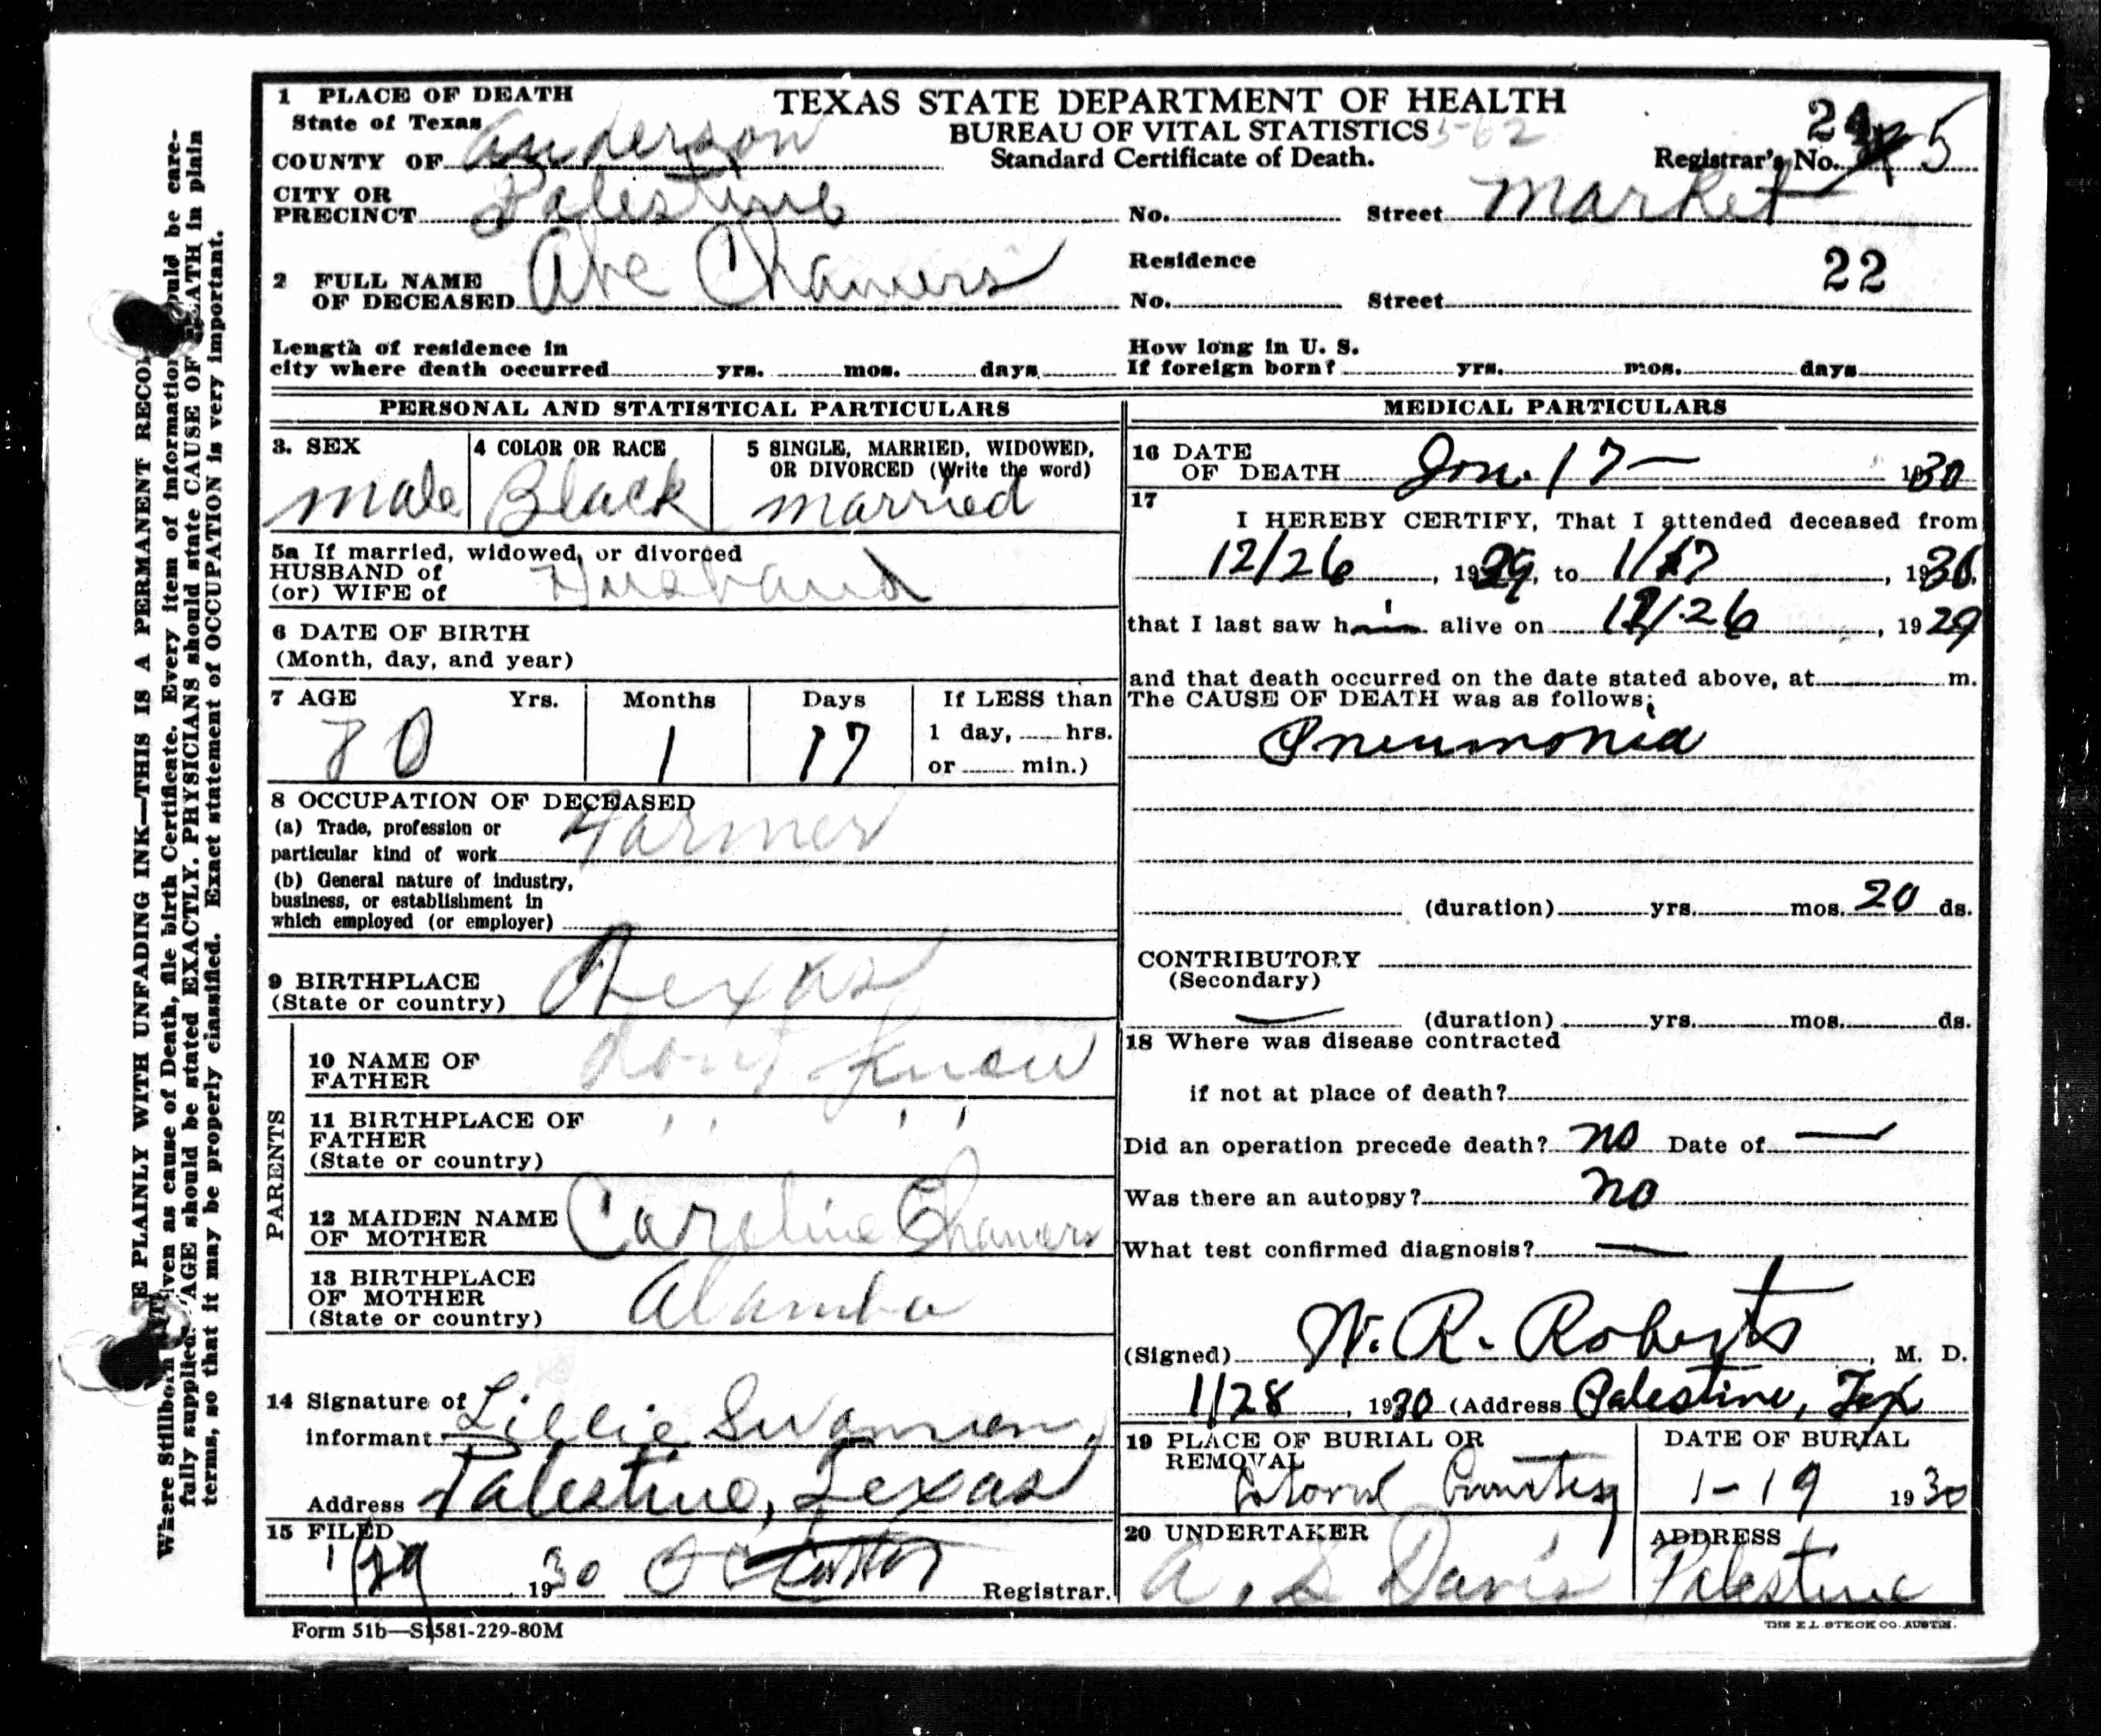 1 PLACE OF DEATH
State of Texas
COUNTY OF Anderson
CITY OR
PRECINCT Palestine
TEXAS STATE DEPARTMENT OF HEALTH
BUREAU OF VITAL STATISTICS
Standard Certificate of Death.
Registrar's No. 5
No. Street Market
2 FULL NAME
OF DECEASED Abe Chamers
Residence 22
No. Street
Length of residence in
city where death occurred yrs. mos. days
How long in U. S.
If foreign born? yrs. mos. days
PERSONAL AND STATISTICAL PARTICULARS
3. SEX
male
4 COLOR OR RACE
Black
5 SINGLE, MARRIED, WIDOWED,
OR DIVORCED (Write the word)
married
5a If married, widowed, or divorced
HUSBAND of
(or) WIFE of Husband
6 DATE OF BIRTH
(Month, day, and year)
7 AGE Yrs. Months Days If LESS than
1 day, hrs.
or min.)
80 1 17
8 OCCUPATION OF DECEASED
(a) Trade, profession or
particular kind of work Farmer
(b) General nature of industry,
business, or establishment in
which employed (or employer)
9 BIRTHPLACE
(State or country) Texas
PARENTS
10 NAME OF
FATHER dont know
11 BIRTHPLACE OF
FATHER
(State or country) " "
12 MAIDEN NAME
OF MOTHER Caroline Chamers
13 BIRTHPLACE
OF MOTHER
(State or country) Alamba
14 Signature of
informant Lillie
Address Palestine, Texas
15 FILED
1/29 1930 Registrar.
MEDICAL PARTICULARS
16 DATE
OF DEATH Jan. 17 — 1930
17
I HEREBY CERTIFY, That I attended deceased from
12/26, 1929, to 1/17, 1930.
that I last saw him alive on 12/26, 1929
and that death occurred on the date stated above, at m.
The CAUSE OF DEATH was as follows:
Pneumonia
(duration) yrs. mos. 20 ds.
CONTRIBUTORY
(Secondary)
(duration) yrs. mos. ds.
18 Where was disease contracted
if not at place of death?
Did an operation precede death? no Date of —
Was there an autopsy? no
What test confirmed diagnosis? —
(Signed) W. R. Roberts, M. D.
1/28, 1930 (Address Palestine, Tex
19 PLACE OF BURIAL OR
REMOVAL
DATE OF BURIAL
1-19 1930
20 UNDERTAKER
A. S Davis
ADDRESS
Palestine
Form 51b—S1581-229-80M
THE E.L. STECK CO. AUSTIN.
E PLAINLY WITH UNFADING INK—THIS IS A PERMANENT RECOR
Where Stillborn given as cause of Death, file birth Certificate. Every item of information should be care-
fully supplied. AGE should be stated EXACTLY. PHYSICIANS should state CAUSE OF DEATH in plain
terms, so that it may be properly classified. Exact statement of OCCUPATION is very important.